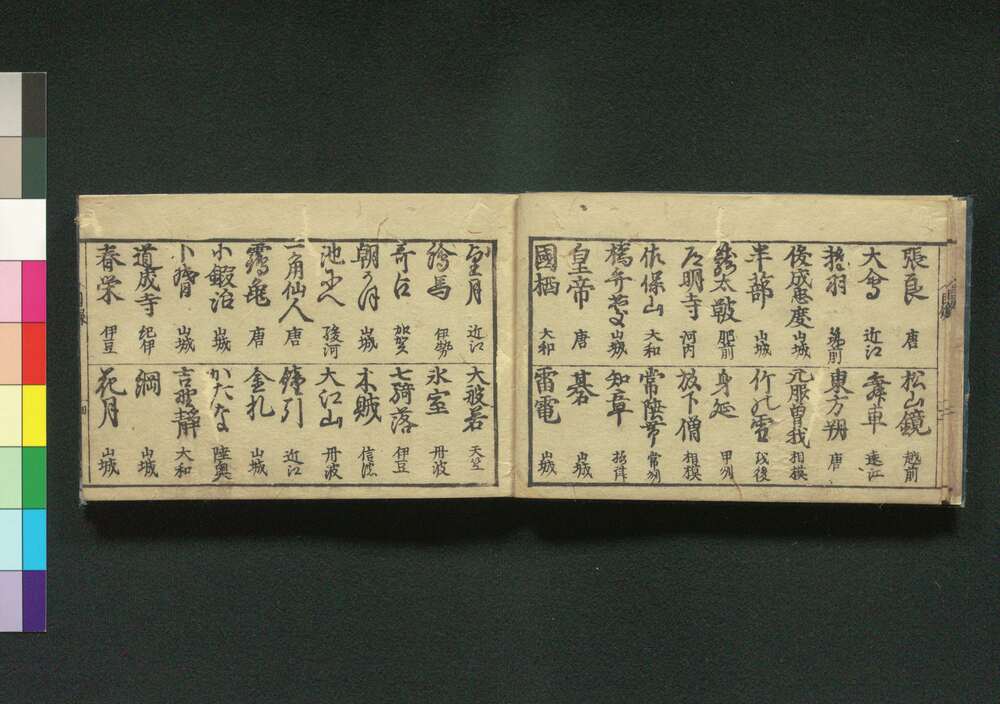 張良 唐
松山鏡 越前
大會 近江
舞車 遠江
東方朔 唐
俊成忠度 山城
元服曽我 相模
半蔀 山城
竹の雪 越後
籠太鼓 肥前
身延 甲州
道明寺 河内
放下僧 相模
佐保山 大和
常陸帯 常州
橋弁慶 山城
知章 摂津
皇帝 唐
碁 山城
國栖 大和
雷電 山城
望月 近江
大般若 天竺
繪馬 伊勢
氷室 丹波
哥占 加賀
七騎落 伊豆
山城
木賊 信濃
池にえ 駿河
大江山 丹波
一角仙人 唐
鐘引 近江
靏亀 唐
金札 山城
小鍛冶 山城
かたな 陸奥
卜聟 山城
吉野静 大和
道成寺 紀伊
綱 山城
春栄 伊豆
花月 山城